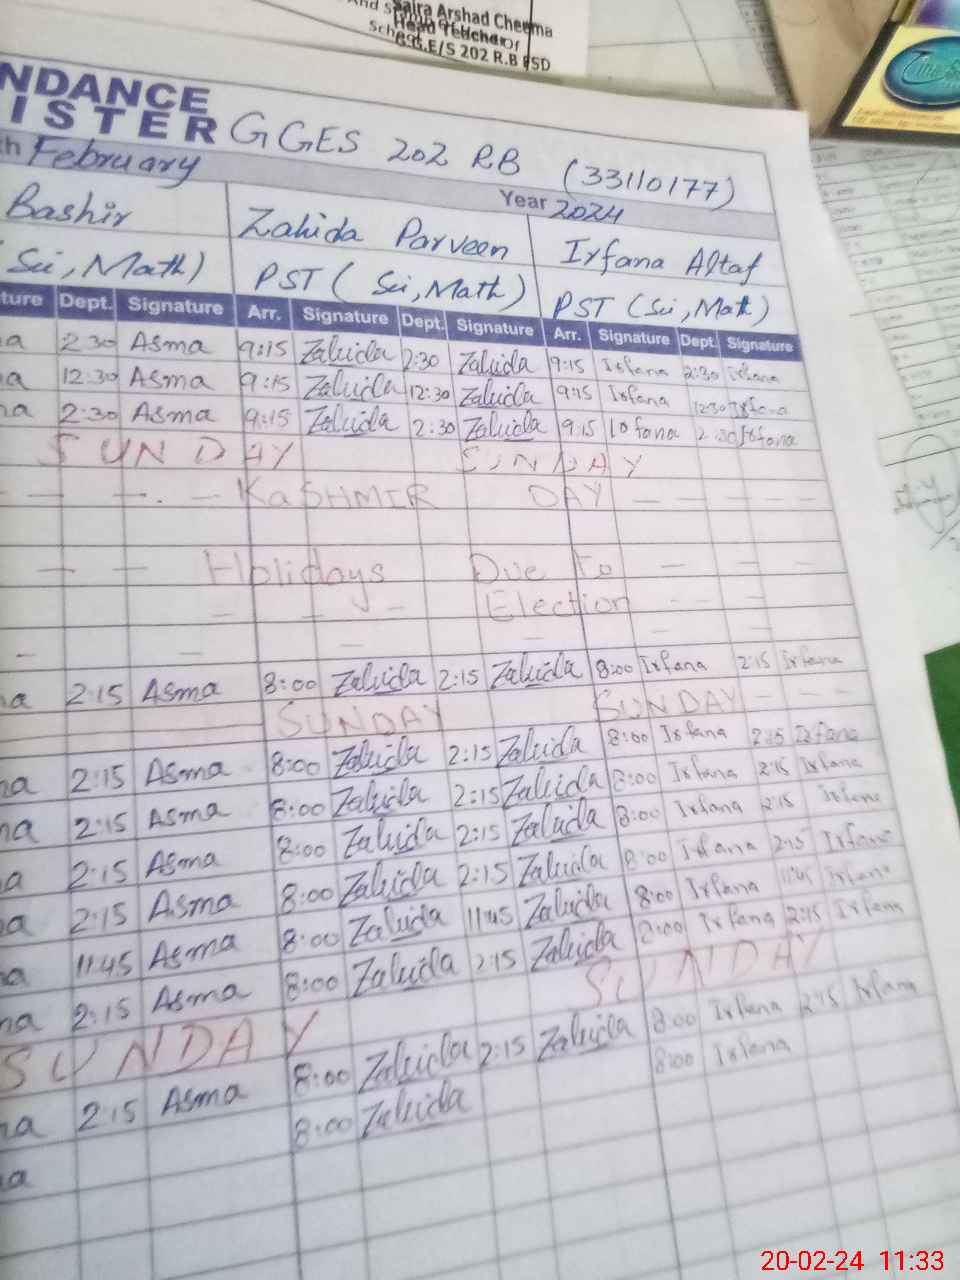 Saira Arshad Cheema
Head Teacher
G.G.E/S 202 R.B FSD
NDANCE
ISTER GGES 202 RB (33110177)
th February Year 2024
Bashir Zahida Parveen Irfana Altaf
Sci, Math) PST ( Sci, Math) PST (Sci, Math)
ture Dept. Signature Arr. Signature Dept. Signature Arr. Signature Dept. Signature
a 2:30 Asma 9:15 Zahida 2:30 Zahida 9:15 Irfana 2:30 Irfana
a 12:30 Asma 9:15 Zahida 12:30 Zahida 9:15 Irfana 12:30 Irfana
a 2:30 Asma 9:15 Zahida 2:30 Zahida 9:15 Irfana 2:30 Irfana
SUNDAY SUNDAY
— — . — KaSHMIR DAY — — — — —
— — Holidays Due To — — —
— — — Election — —
— — — — — —
a 2:15 Asma 8:00 Zahida 2:15 Zahida 8:00 Irfana 2:15 Irfana
SUNDAY SUNDAY — — —
na 2:15 Asma 8:00 Zahida 2:15 Zahida 8:00 Irfana 2:15 Irfana
na 2:15 Asma 8:00 Zahida 2:15 Zahida 8:00 Irfana 2:15 Irfana
a 2:15 Asma 8:00 Zahida 2:15 Zahida 8:00 Irfana 2:15 Irfana
a 2:15 Asma 8:00 Zahida 2:15 Zahida 8:00 Irfana 2:15 Irfana
a 11:45 Asma 8:00 Zahida 11:45 Zahida 8:00 Irfana 11:45 Irfana
na 2:15 Asma 8:00 Zahida 2:15 Zahida 8:00 Irfana 2:15 Irfana
SUNDAY SUNDAY
na 2:15 Asma 8:00 Zahida 2:15 Zahida 8:00 Irfana 2:15 Irfana
a 8:00 Zahida 8:00 Irfana
20-02-24 11:33